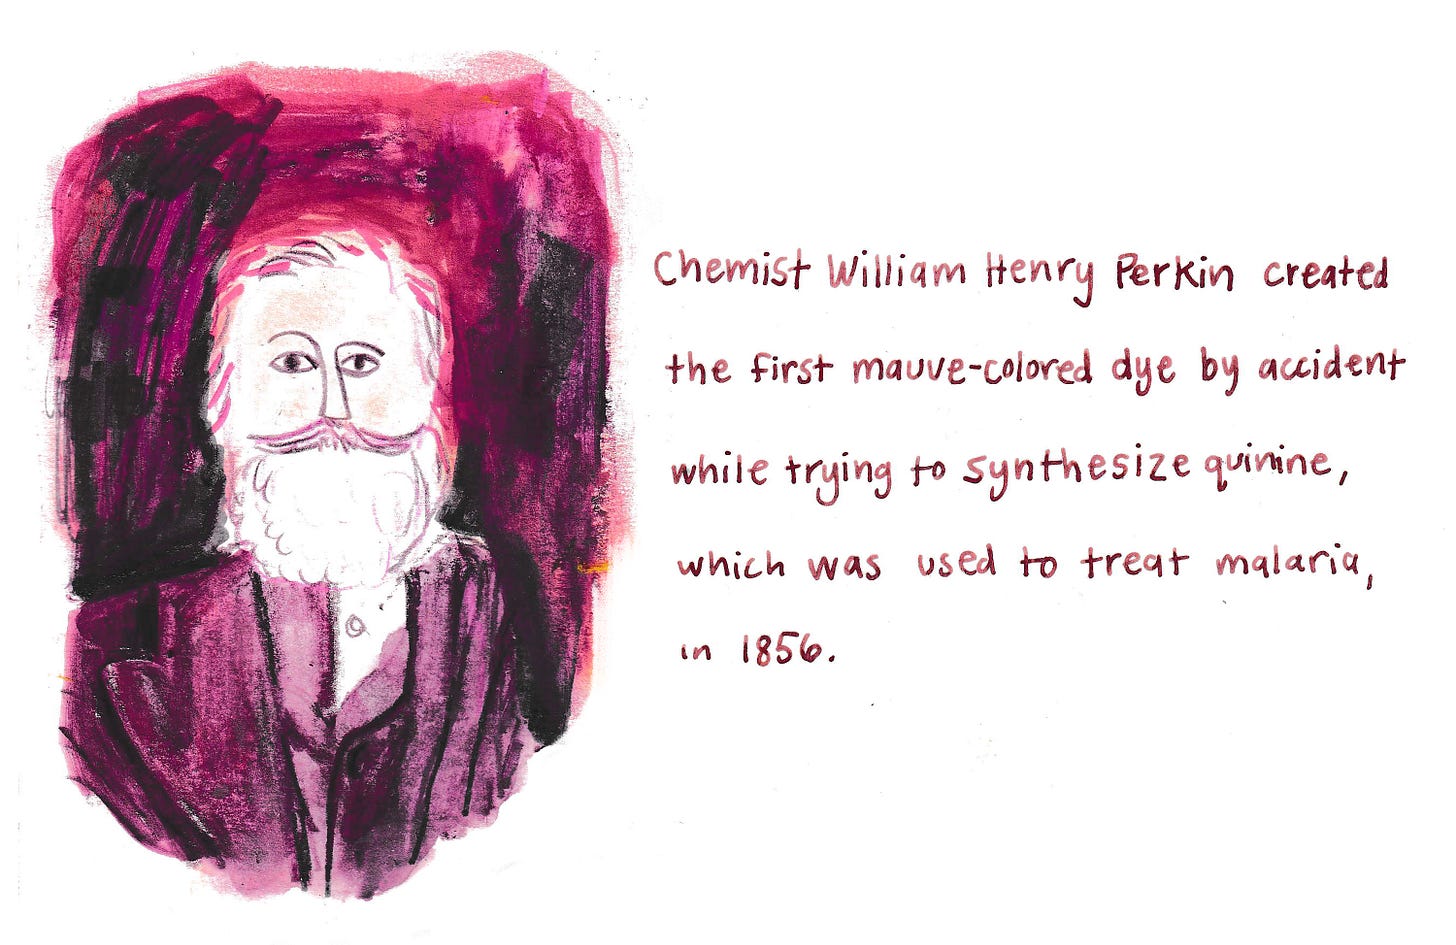 Chemist William Henry Perkin created
the first mauve-colored dye by accident
while trying to synthesize quinine,
which was used to treat malaria,
in 1856.